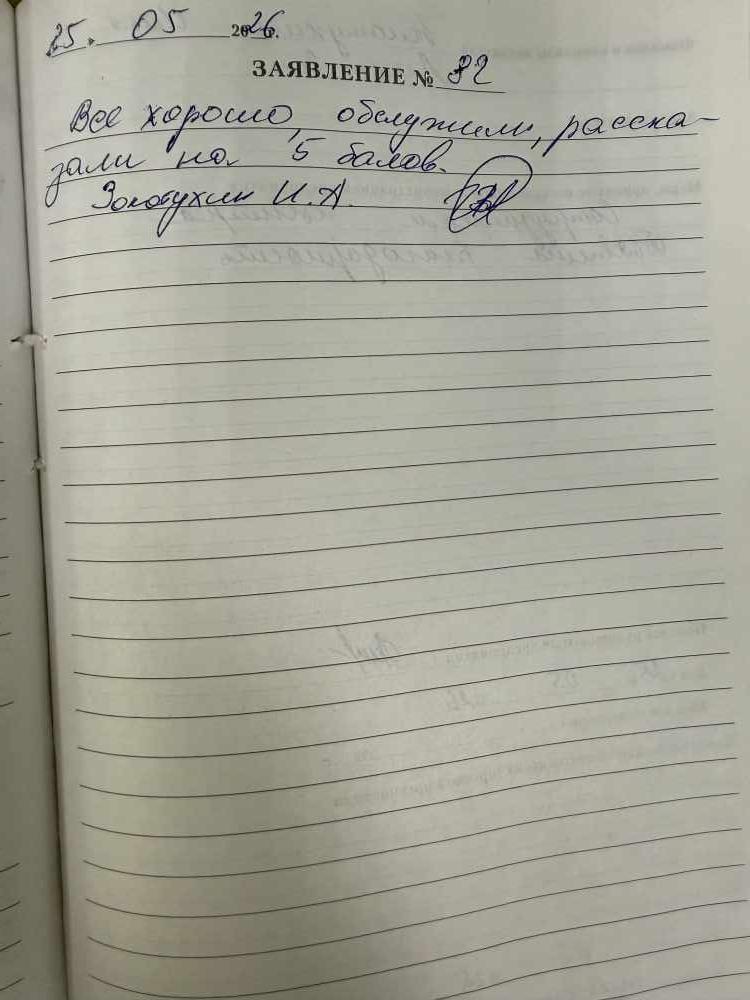 25. 05 2026г.
ЗАЯВЛЕНИЕ № 92
Все хорошо, обслужили, расска-
зали на 5 балов.
Золотухин И.А.